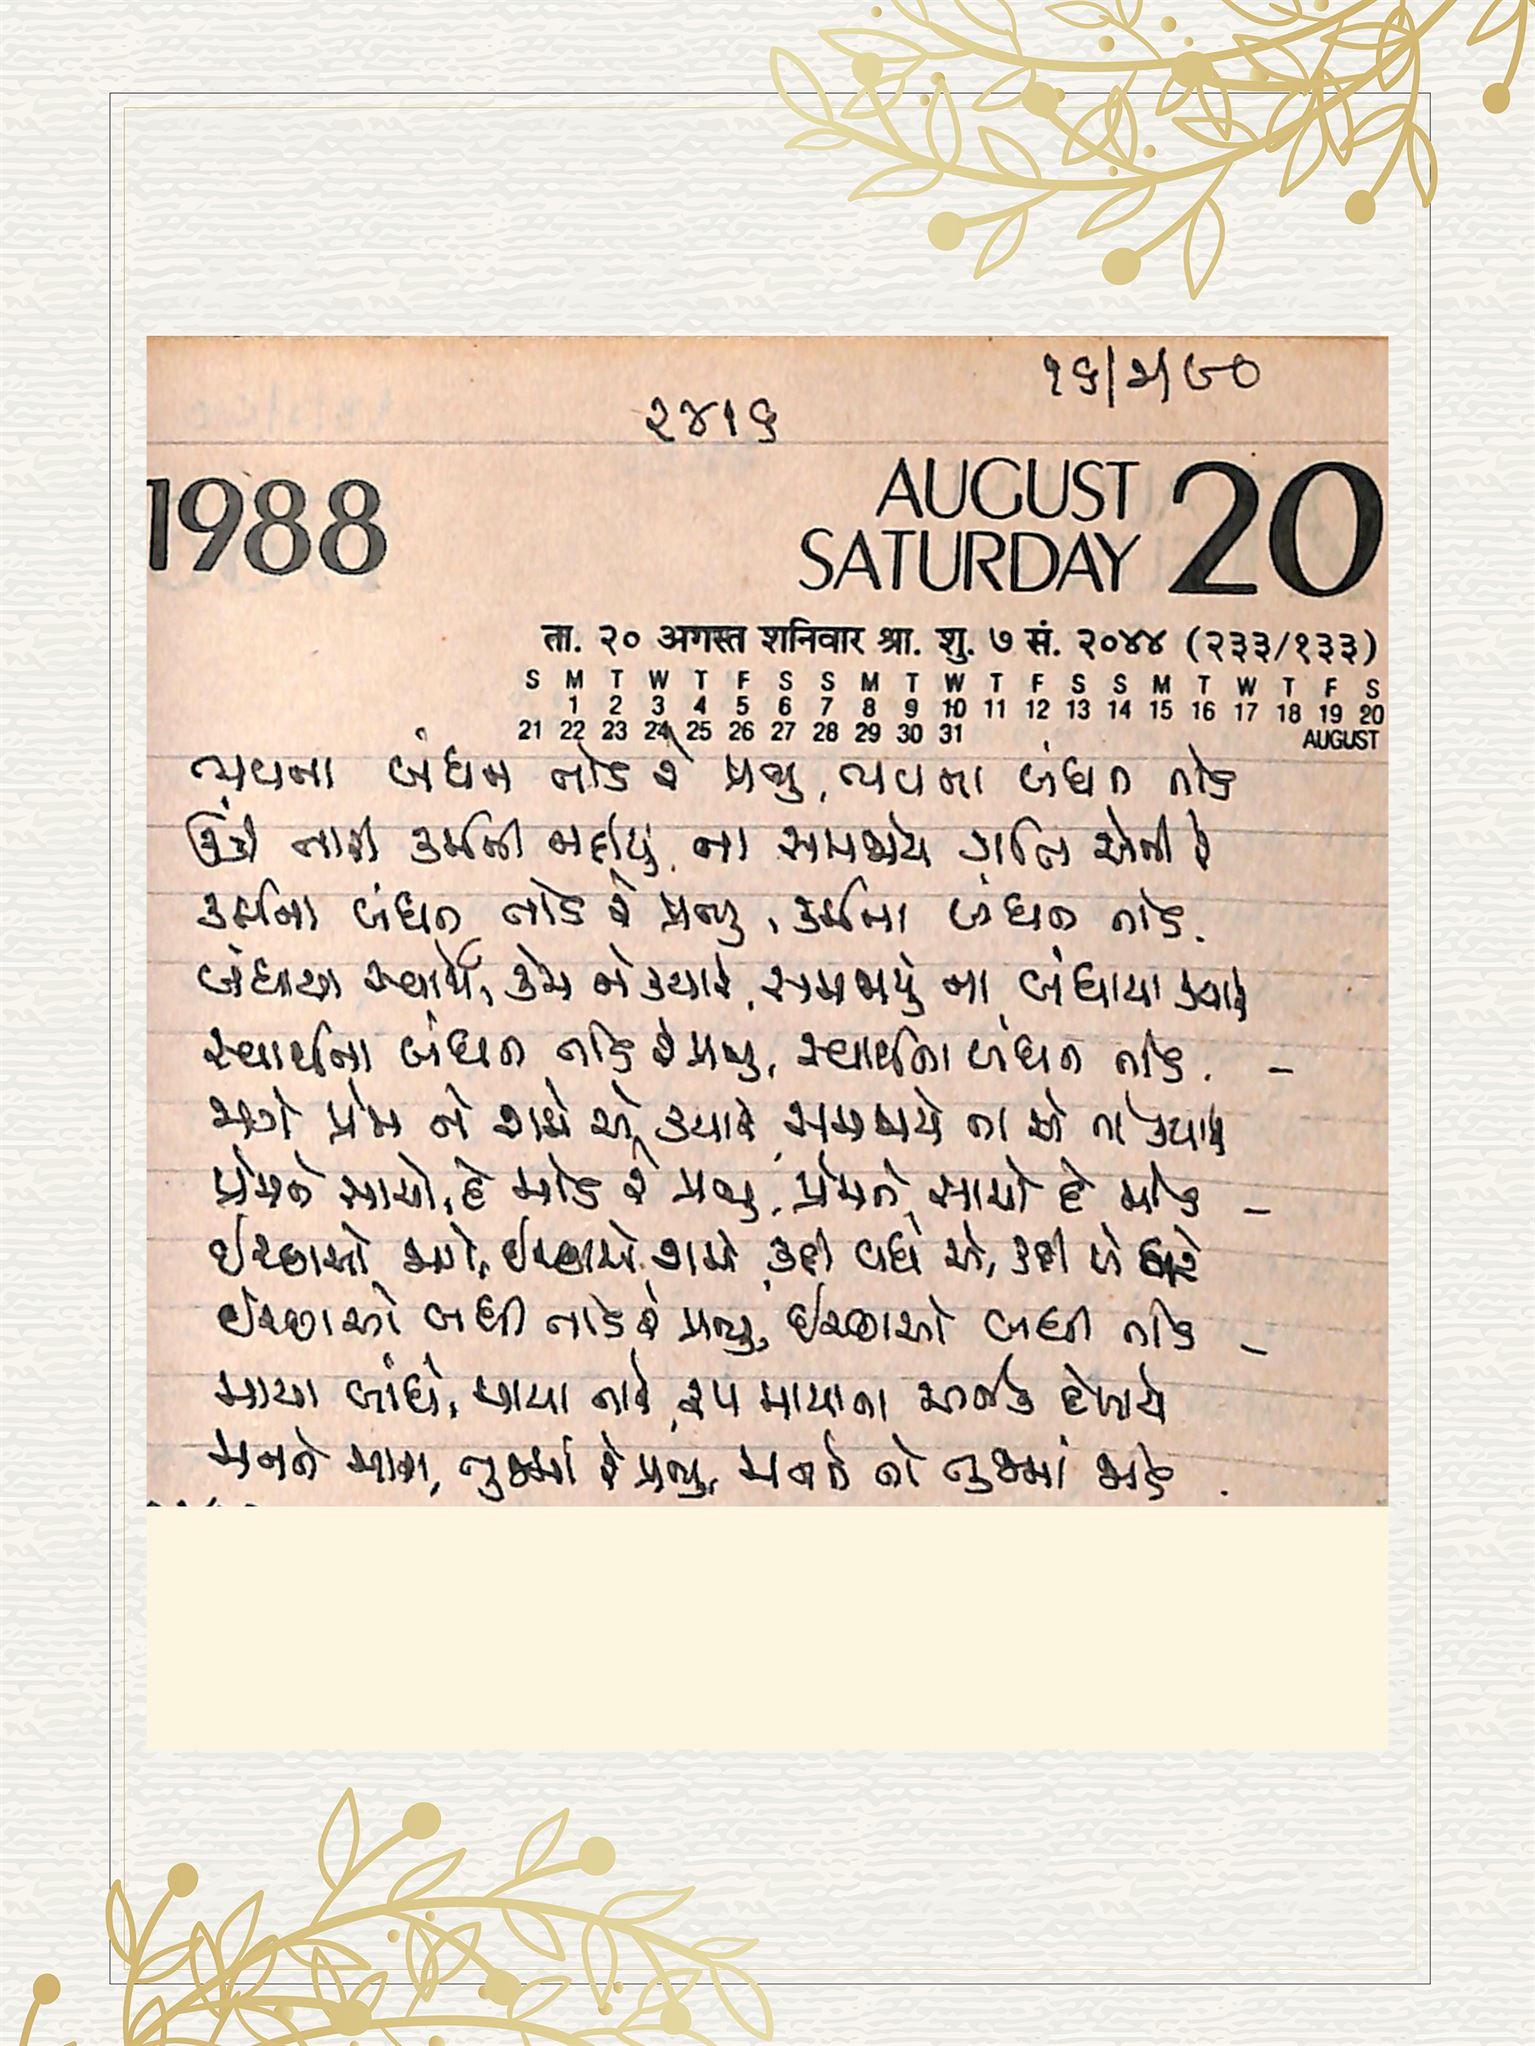 ૧૬/૨/૯૦
૨૪૧૬
1988
AUGUST
SATURDAY 20
ता. २० अगस्त शनिवार श्रा. शु. ७ सं. २०४४ (२३३/१३३)
S M T W T F S S M T W T F S S M T W T F S
1 2 3 4 5 6 7 8 9 10 11 12 13 14 15 16 17 18 19 20
21 22 23 24 25 26 27 28 29 30 31 AUGUST
ભવના બંધન તોડ રે પ્રભુ, ભવના બંધન તોડ
તારી કર્મની ના સમજાયે ગતિ એની રે
કર્મના બંધન તોડ રે પ્રભુ, કર્મના બંધન તોડ.
બંધાયા સ્વાર્થે, કેમ ને ક્યારે, સમજાયું ના બંધાયા ક્યારે
સ્વાર્થના બંધન તોડ રે પ્રભુ, સ્વાર્થના બંધન તોડ. –
પ્રેમ ને એ ક્યારે, સમજાયે ના એ તો ક્યારે
પ્રેમને સાચો, દે મોડ રે પ્રભુ, પ્રેમને સાચો દે મોડ –
ઇચ્છાઓ જાગે, ઇચ્છાઓ શમે, કદી વધે એ, કદી એ
ઇચ્છાઓ બધી તોડ રે પ્રભુ, ઇચ્છાઓ બધી તોડ –
માયા બાંધે, માયા તારે, રૂપ માયાના અનેક દેખાયે
મનને મારા, તુજમાં રે પ્રભુ, મનને તો તુજમાં જોડ.